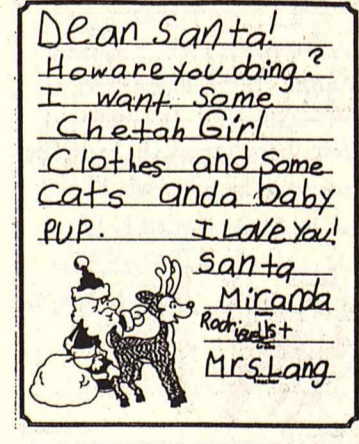 Dean Santa!
How are you doing?
I want Some
Chetah Girl
Clothes and Some
cats anda baby
PUP. I Love You!
Santa
Miranda
1st
Mrs. Lang
Teacher